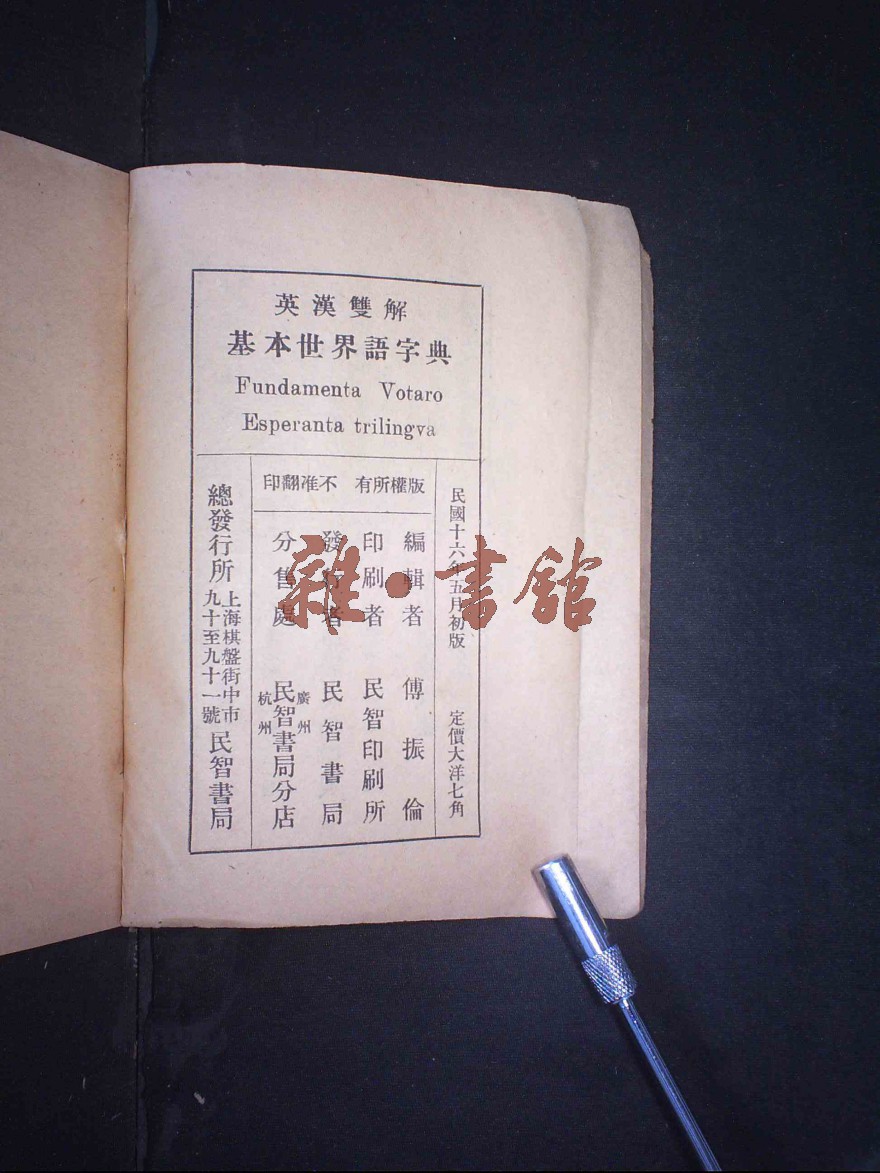 英漢雙解
基本世界語字典
Fundamenta Votaro
Esperanta trilingva
民國十六年五月初版
定價大洋七角
版權所有 不准翻印
編輯者 傅振倫
印刷者 民智印刷所
發行者 民智書局
分售處 廣州 杭州 民智書局分店
總發行所 上海棋盤街中市
九十至九十一號 民智書局
雜·書館